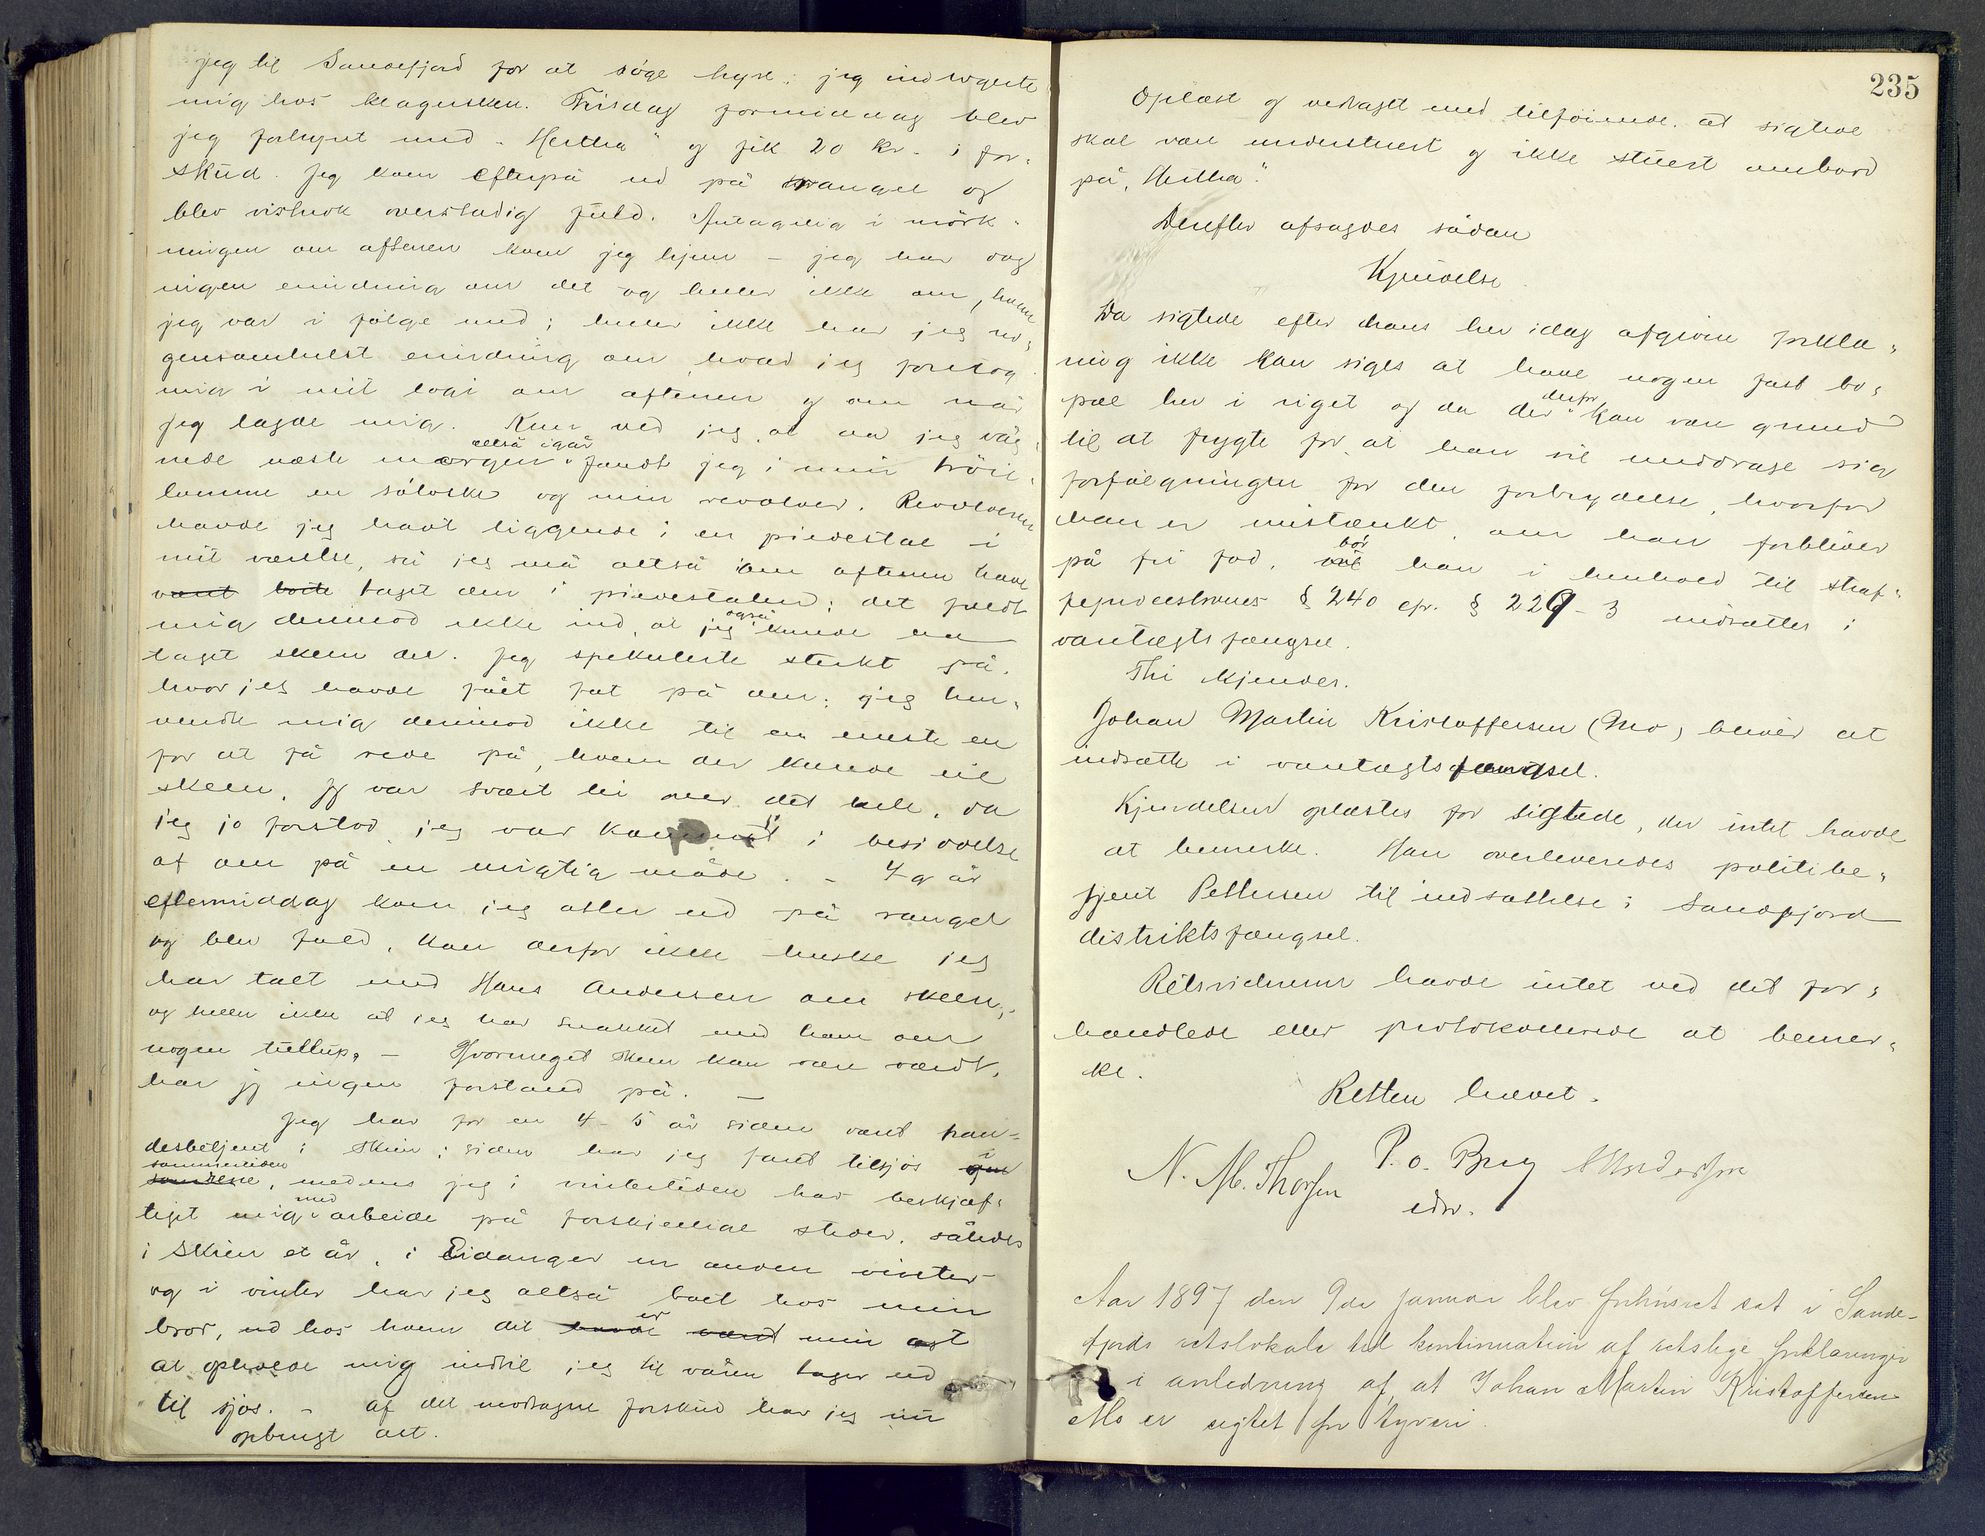 jeg til Sandefjord for at søge hyre; jeg indlogerte
mig hos klagersken. Tirsdag formiddag blev
jeg forhyret med „Hertha" og fik 20 kr. i for-
skud. Jeg kom efterpå ud på rangel og
blev vistnok overstadig fuld. Antagelig i mörk-
ningen om aftenen kom jeg hjem – jeg har dog
ingen erindring om det og heller ikke om, hvem
jeg var i følge med; heller ikke har jeg no-
gensomhelst erindring om, hvad jeg foretog
mig i mit logi om aftenen og om når
jeg lagde mig. Kun ved jeg, at da jeg våg-
nede næste morgen altså igår fandt jeg i min tröie-
lomme en sölvske og min revolver. Revolveren
havde jeg havt liggende i en piedestal i
mit værelse, så jeg må altså om aftenen have
været borte taget den i piedestalen; det faldt
mig derimod ikke ind, at jeg også kunde ha
taget skeen der. Jeg spekulerte sterkt på,
hvor jeg havde fået fat på den; jeg hen-
vendte mig derimod ikke til en eneste en
for at få rede på, hvem der kunde eie
skeen. Jeg var svært lei over det hele, da
jeg jo forstod, jeg var kommet i besiddelse
af den på en urigtig måde. – Igår
eftermiddag kom jeg atter ud på rangel
og blev fuld, kan derfor ikke huske jeg
har talt med Hans Andersen om skeen,
og heller ikke at jeg har snakket med ham om
nogen – Hvormeget skeen kan være værdt,
har jeg ingen forstand på. –
Jeg har for en 4-5 år siden været han-
delsbetjent i Skien; siden har jeg faret tilsjös i om
sommertiden somrene, medens jeg i vintertiden har beskjæf-
tiget mig med arbeide på forskjellige steder, således
i Skien et år, i Eidanger en anden vinter
og i vinter har jeg altså boet hos min
bror, ud hos hvem det er havde været min agt
at opholde mig indtil jeg til våren tager ud
til sjös. – af det modtagne forskud har jeg nu
opbrugt alt.
235
Oplæst og vedtaget med tilföiende, at sigtede
skal være understuert og ikke stuert ombord
på „Hertha".
Derefter afsagdes sådan
Kjendelse
Da sigtede efter hans her idag afgivne forkla-
ring ikke kan siges at have nogen fast bo-
pæl her i riget og da der derfor kan være grund
til at frygte for, at han vil unddrage sig
forfølgningen for den forbrydelse, hvorfor
han er mistænkt, om han forbliver
på fri fod, vil bör han i henhold til straf-
feprocesslovens § 240 cfr. § 229-3 indsættes i
varetægtsfængsel.
Thi kjendes.
Johan Martin Kristoffersen (Mo) bliver at
indsætte i varetægtsfængsel.
Kjendelsen oplæstes for sigtede, der intet havde
at bemerke. Han overleveredes politibe-
tjent Pettersen til indsættelse i Sandefjord
distriktsfængsel.
Retsvidnerne havde intet ved det for-
handlede eller protokollerede at bemer-
ke.
Retten hævet.
N. M. Thorsen P. o. Bug Andersen
edsv.
Aar 1897 den 9de Januar blev forhørsret sat i Sande-
fjords retslokale til kontinuation af retslige forklaringer
i anledning af, at Johan Martin Kristoffersen
Mo er sigtet for tyveri.